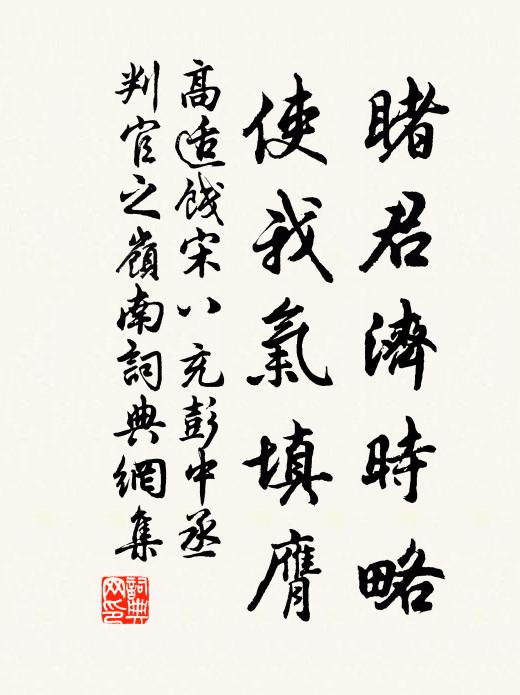 睹君濟時略
使我氣填膺
高适餞宋八充彭中丞
判官之嶺南詞典網集
詞典網印